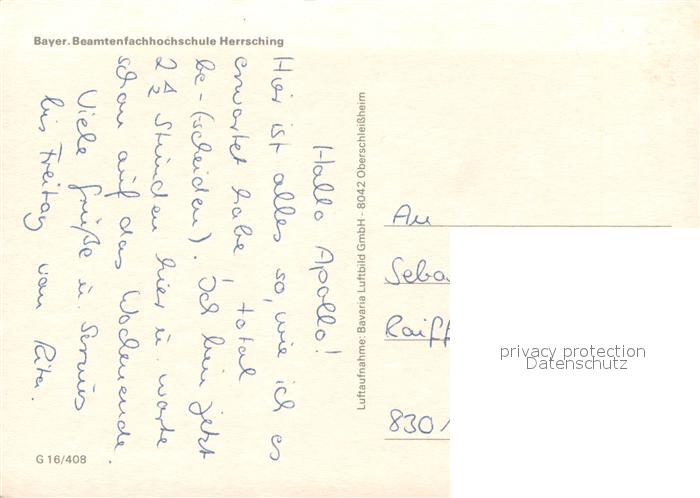 Bayer. Beamtenfachhochschule Herrsching
Hallo Apollo!
Hier ist alles so, wie ich es
erwartet habe, total
be-(scheiden). Ich bin jetzt
2 1/2 Stunden hier u. warte
schon auf das Wochenende.
Viele Grüße u. Servus
bis Freitag von Rita.
Luftaufnahme: Bavaria Luftbild GmbH - 8042 Oberschleißheim
An
Seba
Raiff
830
privacy protection
Datenschutz
G 16/408